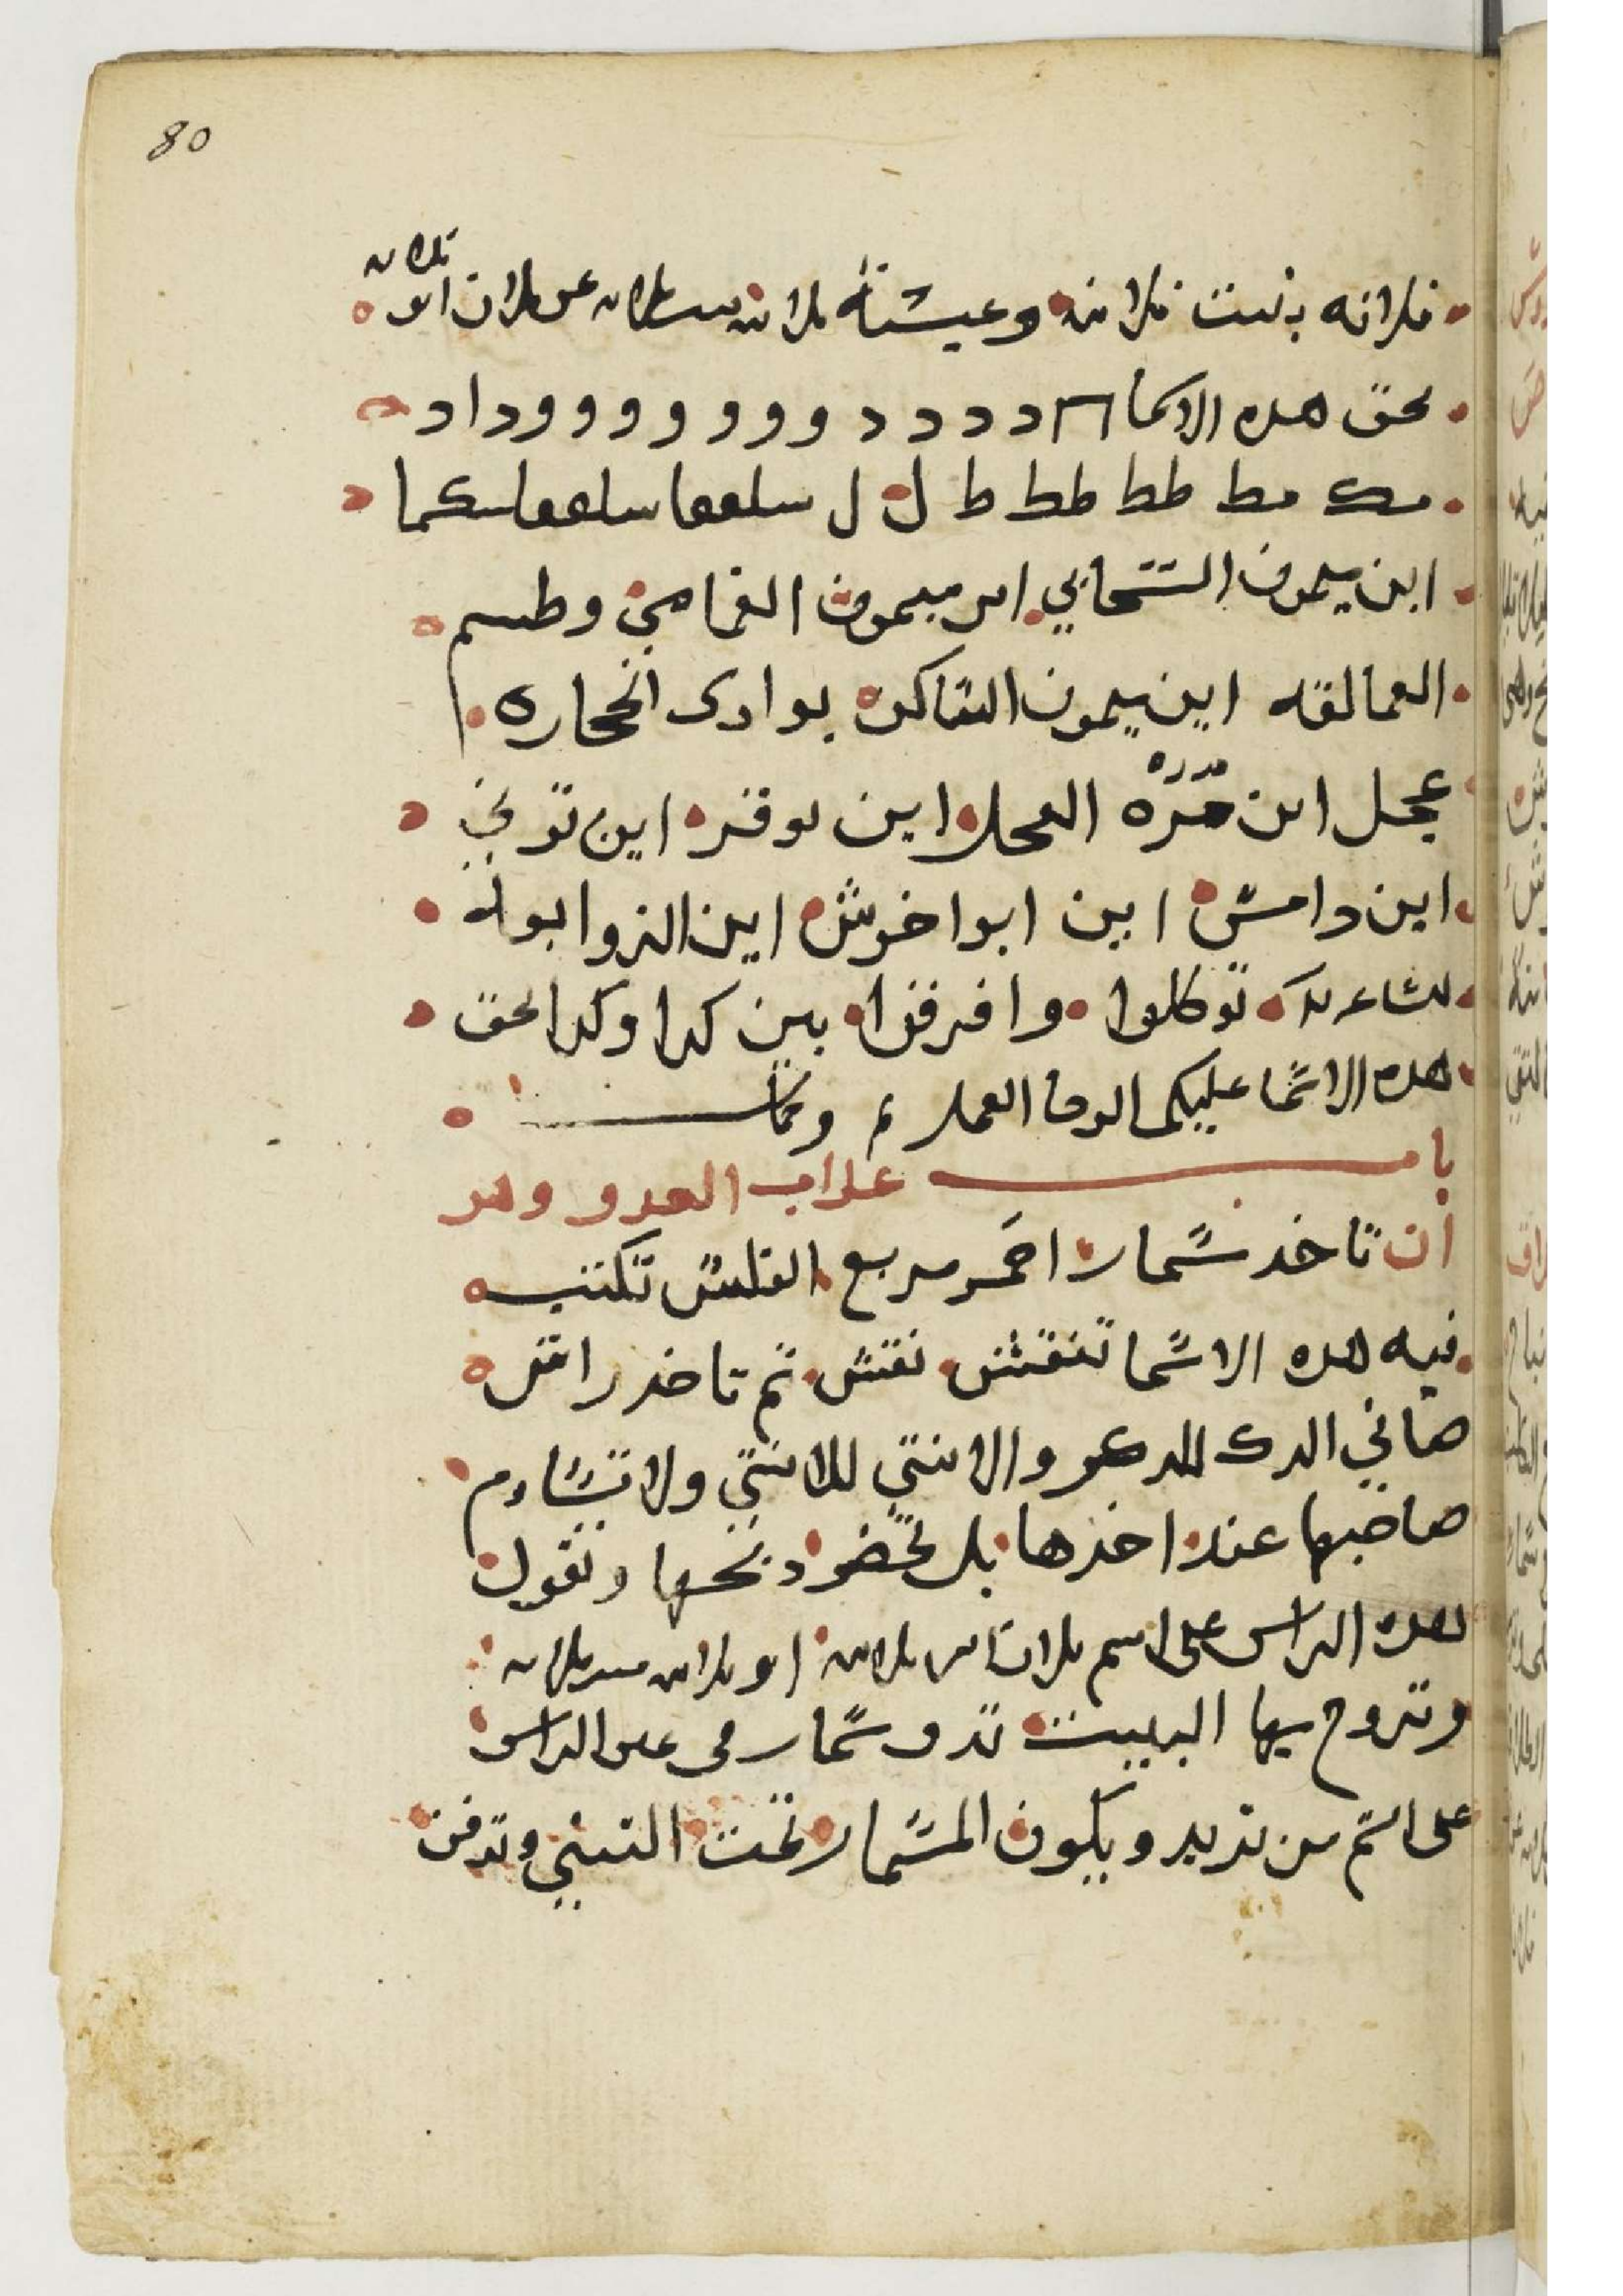 80
فلانه
فلانه بنت فلانه وعيشة فلانه بنت فلانه عن فلان ابن
بحق هده الاسما ددددد وووووووووداد
مط طط طط ط ل ل سلععا سلععا سكما
اين ميمون السحابي اين ميمون الغمامي وطسم
العمالقه اين ميمون الساكن بوادى الحجاره
عجل ابن مرة العجل اين اين
اين دامس اين ابوا خوش اين الزوابوله
توكلوا وافرقوا بين كدا وكدا بحق
هده الاسما عليكم الوحا العمل م وتمت
باب عداب العدو وهو
ان تاخد شمار احمر مربع الفلس تكتب
فيه هده الاسما تنقش نقش تم تاخد راس
ضاني الدكر للدكر والانتي للانتي ولا تساوم
صاحبها عند اخدها بل تحضر دبحها وتقول
هده الراس على اسم فلان ابن فلانه او فلانه بنت فلانه
وتروح بها البيت تدق شمار في عين الراس
على اسم من تريد ويكون المشمار تحت التبني وتدفن